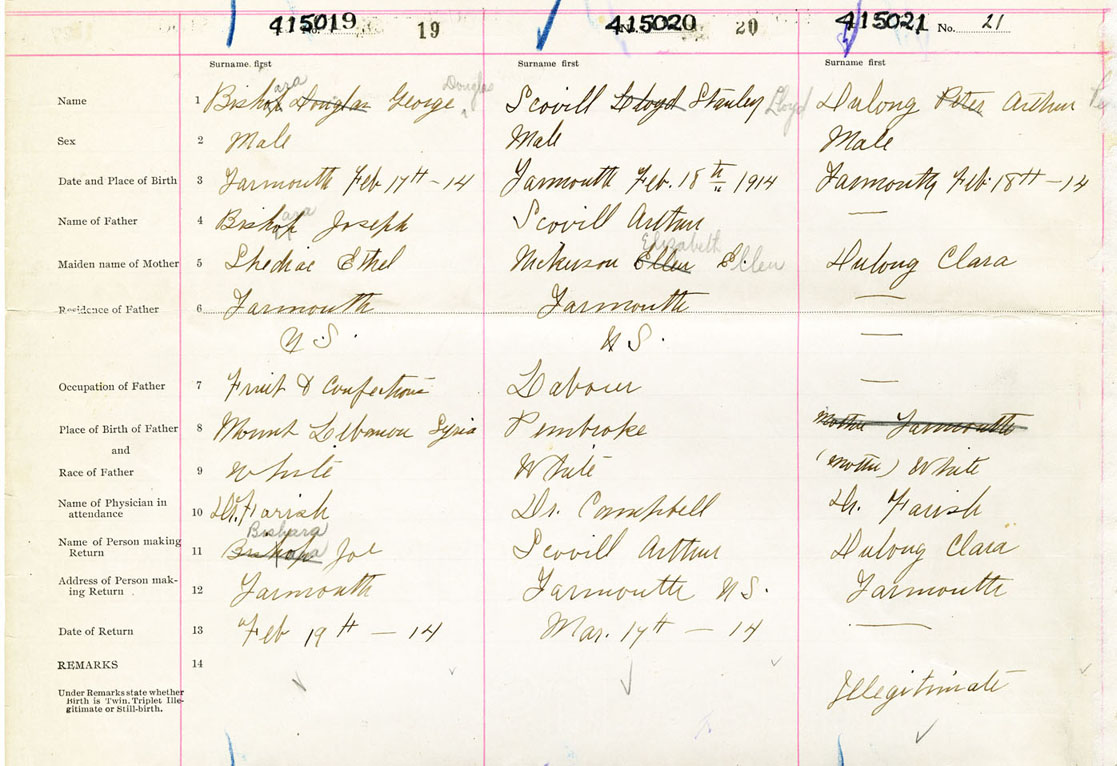 415019 No. 19 415020 No. 20 415021 No. 21
Surname first Surname first Surname first
Name 1 Bishop ara Douglas George, Douglas Scovill Lloyd Stanley Lloyd Dulong Peter Arthur Pe
Sex 2 Male Male Male
Date and Place of Birth 3 Yarmouth Feb 17th - 14 Yarmouth Feb. 18th 1914 Yarmouth Feb. 18th - 14
Name of Father 4 Bishop ara Joseph Scovill Arthur —
Maiden name of Mother 5 Shediac Ethel Nickerson Ellen Elizabeth E. Ellen Dulong Clara
Residence of Father 6 Yarmouth Yarmouth —
N.S. N.S. —
Occupation of Father 7 Fruit & Confections Labourer —
Place of Birth of Father 8 Mount Lebanon Syria Pembroke Mother Yarmouth
and
Race of Father 9 White White (Mother) White
Name of Physician in
attendance 10 Dr. Farish Dr. Campbell Dr. Farish
Name of Person making
Return 11 Bishop Bishara Joe Scovill Arthur Dulong Clara
Address of Person mak-
ing Return 12 Yarmouth Yarmouth N.S. Yarmouth
Date of Return 13 Feb 19th - 14 Mar. 17th - 14 —
REMARKS 14
Under Remarks state whether
Birth is Twin, Triplet Ille-
gitimate or Still-birth.
Illegitimate